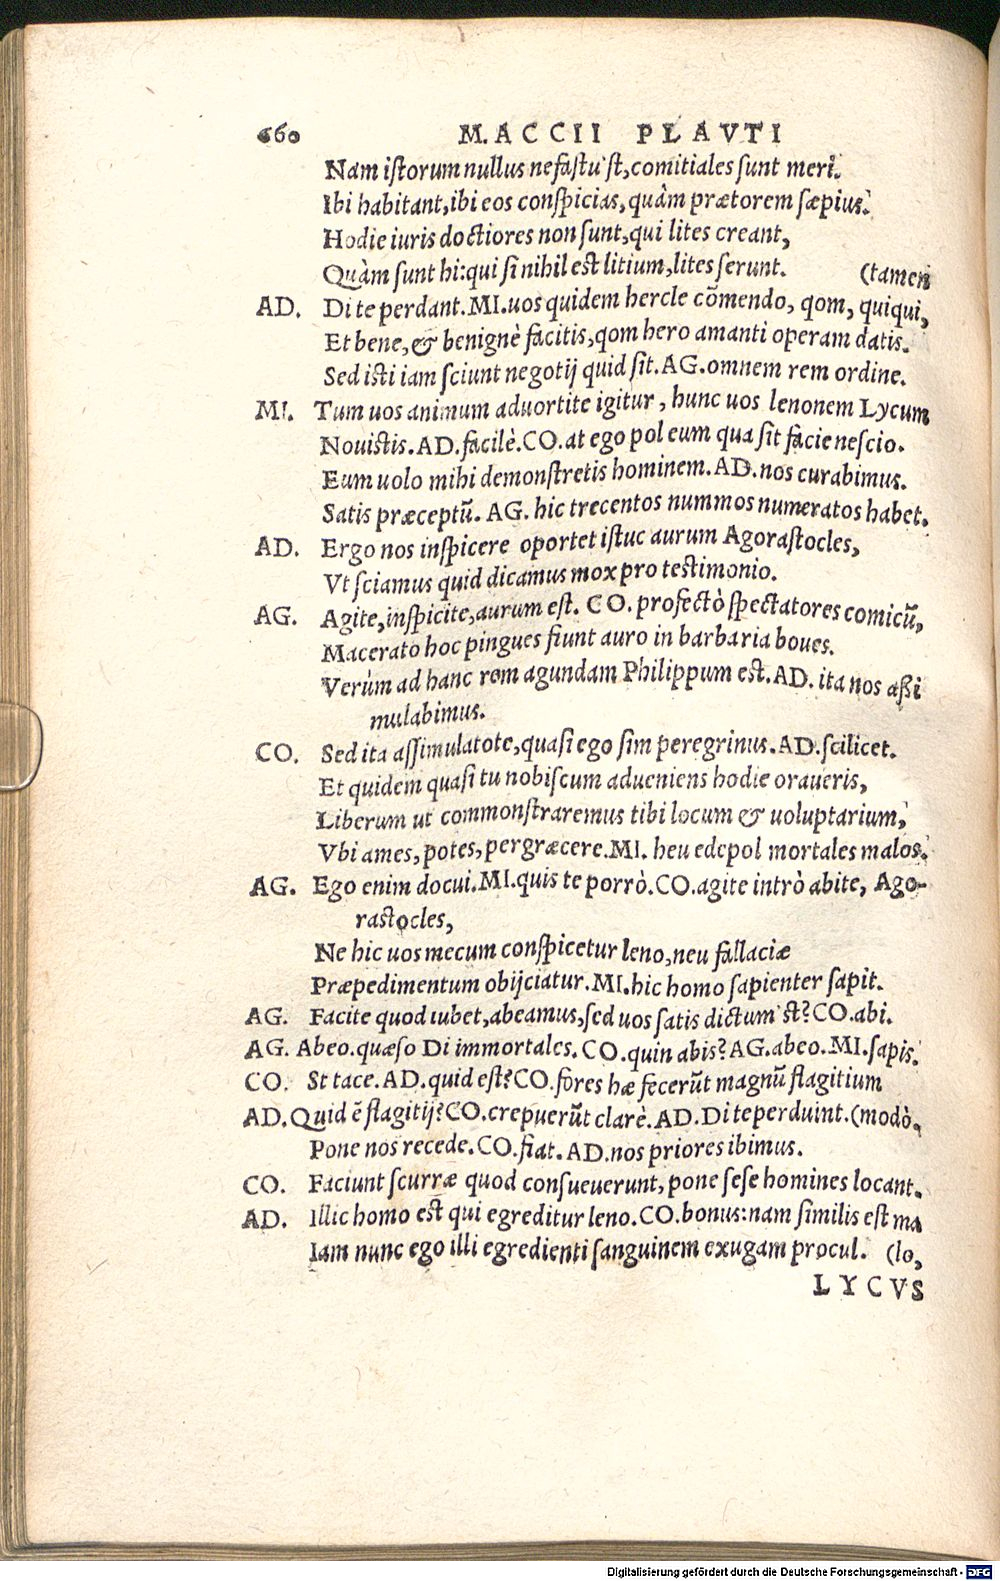 660 M. ACCII PLAVTI
Nam istorum nullus nefastu'st, comitiales sunt meri.
Ibi habitant, ibi eos conspicias, quàm prætorem sæpius.
Hodie iuris doctiores non sunt, qui lites creant,
Quàm sunt hi: qui si nihil est litium, lites serunt. (tamen
AD. Di te perdant. MI. uos quidem hercle cōmendo, qom, quiqui,
Et bene, & benignè facitis, qom hero amanti operam datis.
Sed isti iam sciunt negotij quid sit. AG. omnem rem ordine.
MI. Tum uos animum aduortite igitur, hunc uos lenonem Lycum
Nouistis. AD. facilè. CO. at ego pol eum qua sit facie nescio.
Eum uolo mihi demonstretis hominem. AD. nos curabimus.
Satis præceptū. AG. hic trecentos nummos numeratos habet.
AD. Ergo nos inspicere oportet istuc aurum Agorastocles,
Vt sciamus quid dicamus mox pro testimonio.
AG. Agite, inspicite, aurum est. CO. profectò spectatores comicū,
Macerato hoc pingues fiunt auro in barbaria boues.
Verùm ad hanc rem agundam Philippum est. AD. ita nos assi
mulabimus.
CO. Sed ita assimulatote, quasi ego sim peregrinus. AD. scilicet.
Et quidem quasi tu nobiscum adueniens hodie oraueris,
Liberum ut commonstraremus tibi locum & uoluptarium,
Vbi ames, potes, pergræcere. MI. heu edepol mortales malos.
AG. Ego enim docui. MI. quis te porrò. CO. agite intrò abite, Ago-
rastocles,
Ne hic uos mecum conspicetur leno, neu fallaciæ
Præpedimentum obijciatur. MI. hic homo sapienter sapit.
AG. Facite quod iubet, abeamus, sed uos satis dictum'st? CO. abi.
AG. Abeo. quæso Di immortales. CO. quin abis? AG. abeo. MI. sapis.
CO. St tace. AD. quid est? CO. fores hæ fecerūt magnū flagitium
AD. Quid ē flagitij? CO. crepuerūt clarè. AD. Di te perduint. (modò.
Pone nos recede. CO. fiat. AD. nos priores ibimus.
CO. Faciunt scurræ quod consueuerunt, pone sese homines locant.
AD. Illic homo est qui egreditur leno. CO. bonus: nam similis est ma
Iam nunc ego illi egredienti sanguinem exugam procul. (lo,
LYCVS
Digitalisierung gefördert durch die Deutsche Forschungsgemeinschaft - DFG